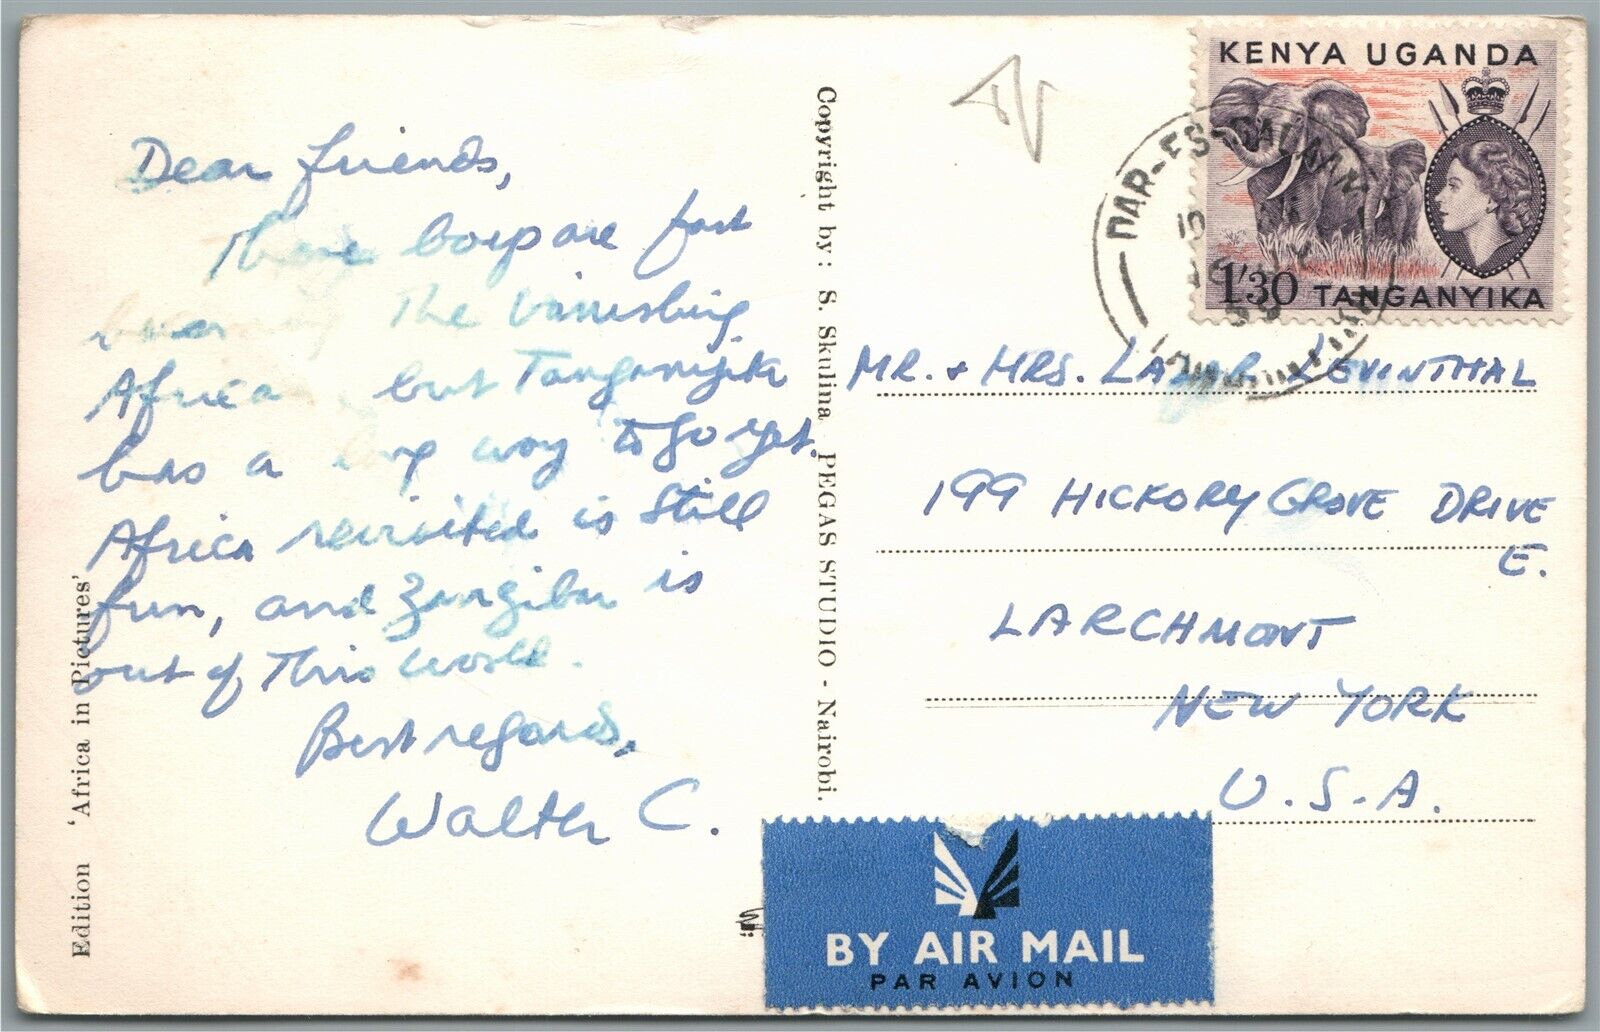 Dear friends,
These boys are fast
the vanishing
Africa, but Tanganyika
has a long way to go yet.
Africa revisited is still
fun, and Zanzibar is
out of this world.
Best regards,
Walter C.
Edition 'Africa in Pictures'
Copyright by: S. Skulina PEGAS STUDIO - Nairobi.
KENYA UGANDA
1/30 TANGANYIKA
DAR-ES-SALAAM
MR. + MRS. LAZAR LEVINTHAL
199 HICKORY GROVE DRIVE
E.
LARCHMONT
NEW YORK
U.S.A.
BY AIR MAIL
PAR AVION